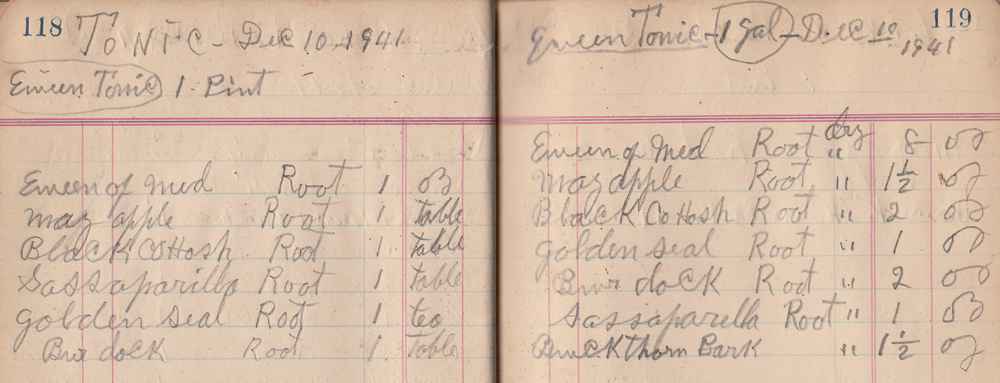 118
To N F C - Dec 10. 1941
Eween Tonic 1 Pint
Eween of Med Root 1 oz
may apple Root 1 table
Black Cohosh Root 1 table
Sassaparilla Root 1 table
golden seal Root 1 tea
Burdock Root 1 Table
119
Eween Tonic - 1 Gal - Dec 10 1941
Eween of Med Root dry 8 oz
may apple Root " 1 1/2 oz
Black CoHosh Root " 2 oz
golden seal Root " 1 oz
Burdock Root " 2 oz
Sassaparilla Root " 1 oz
Buckthorn Bark " 1 1/2 oz